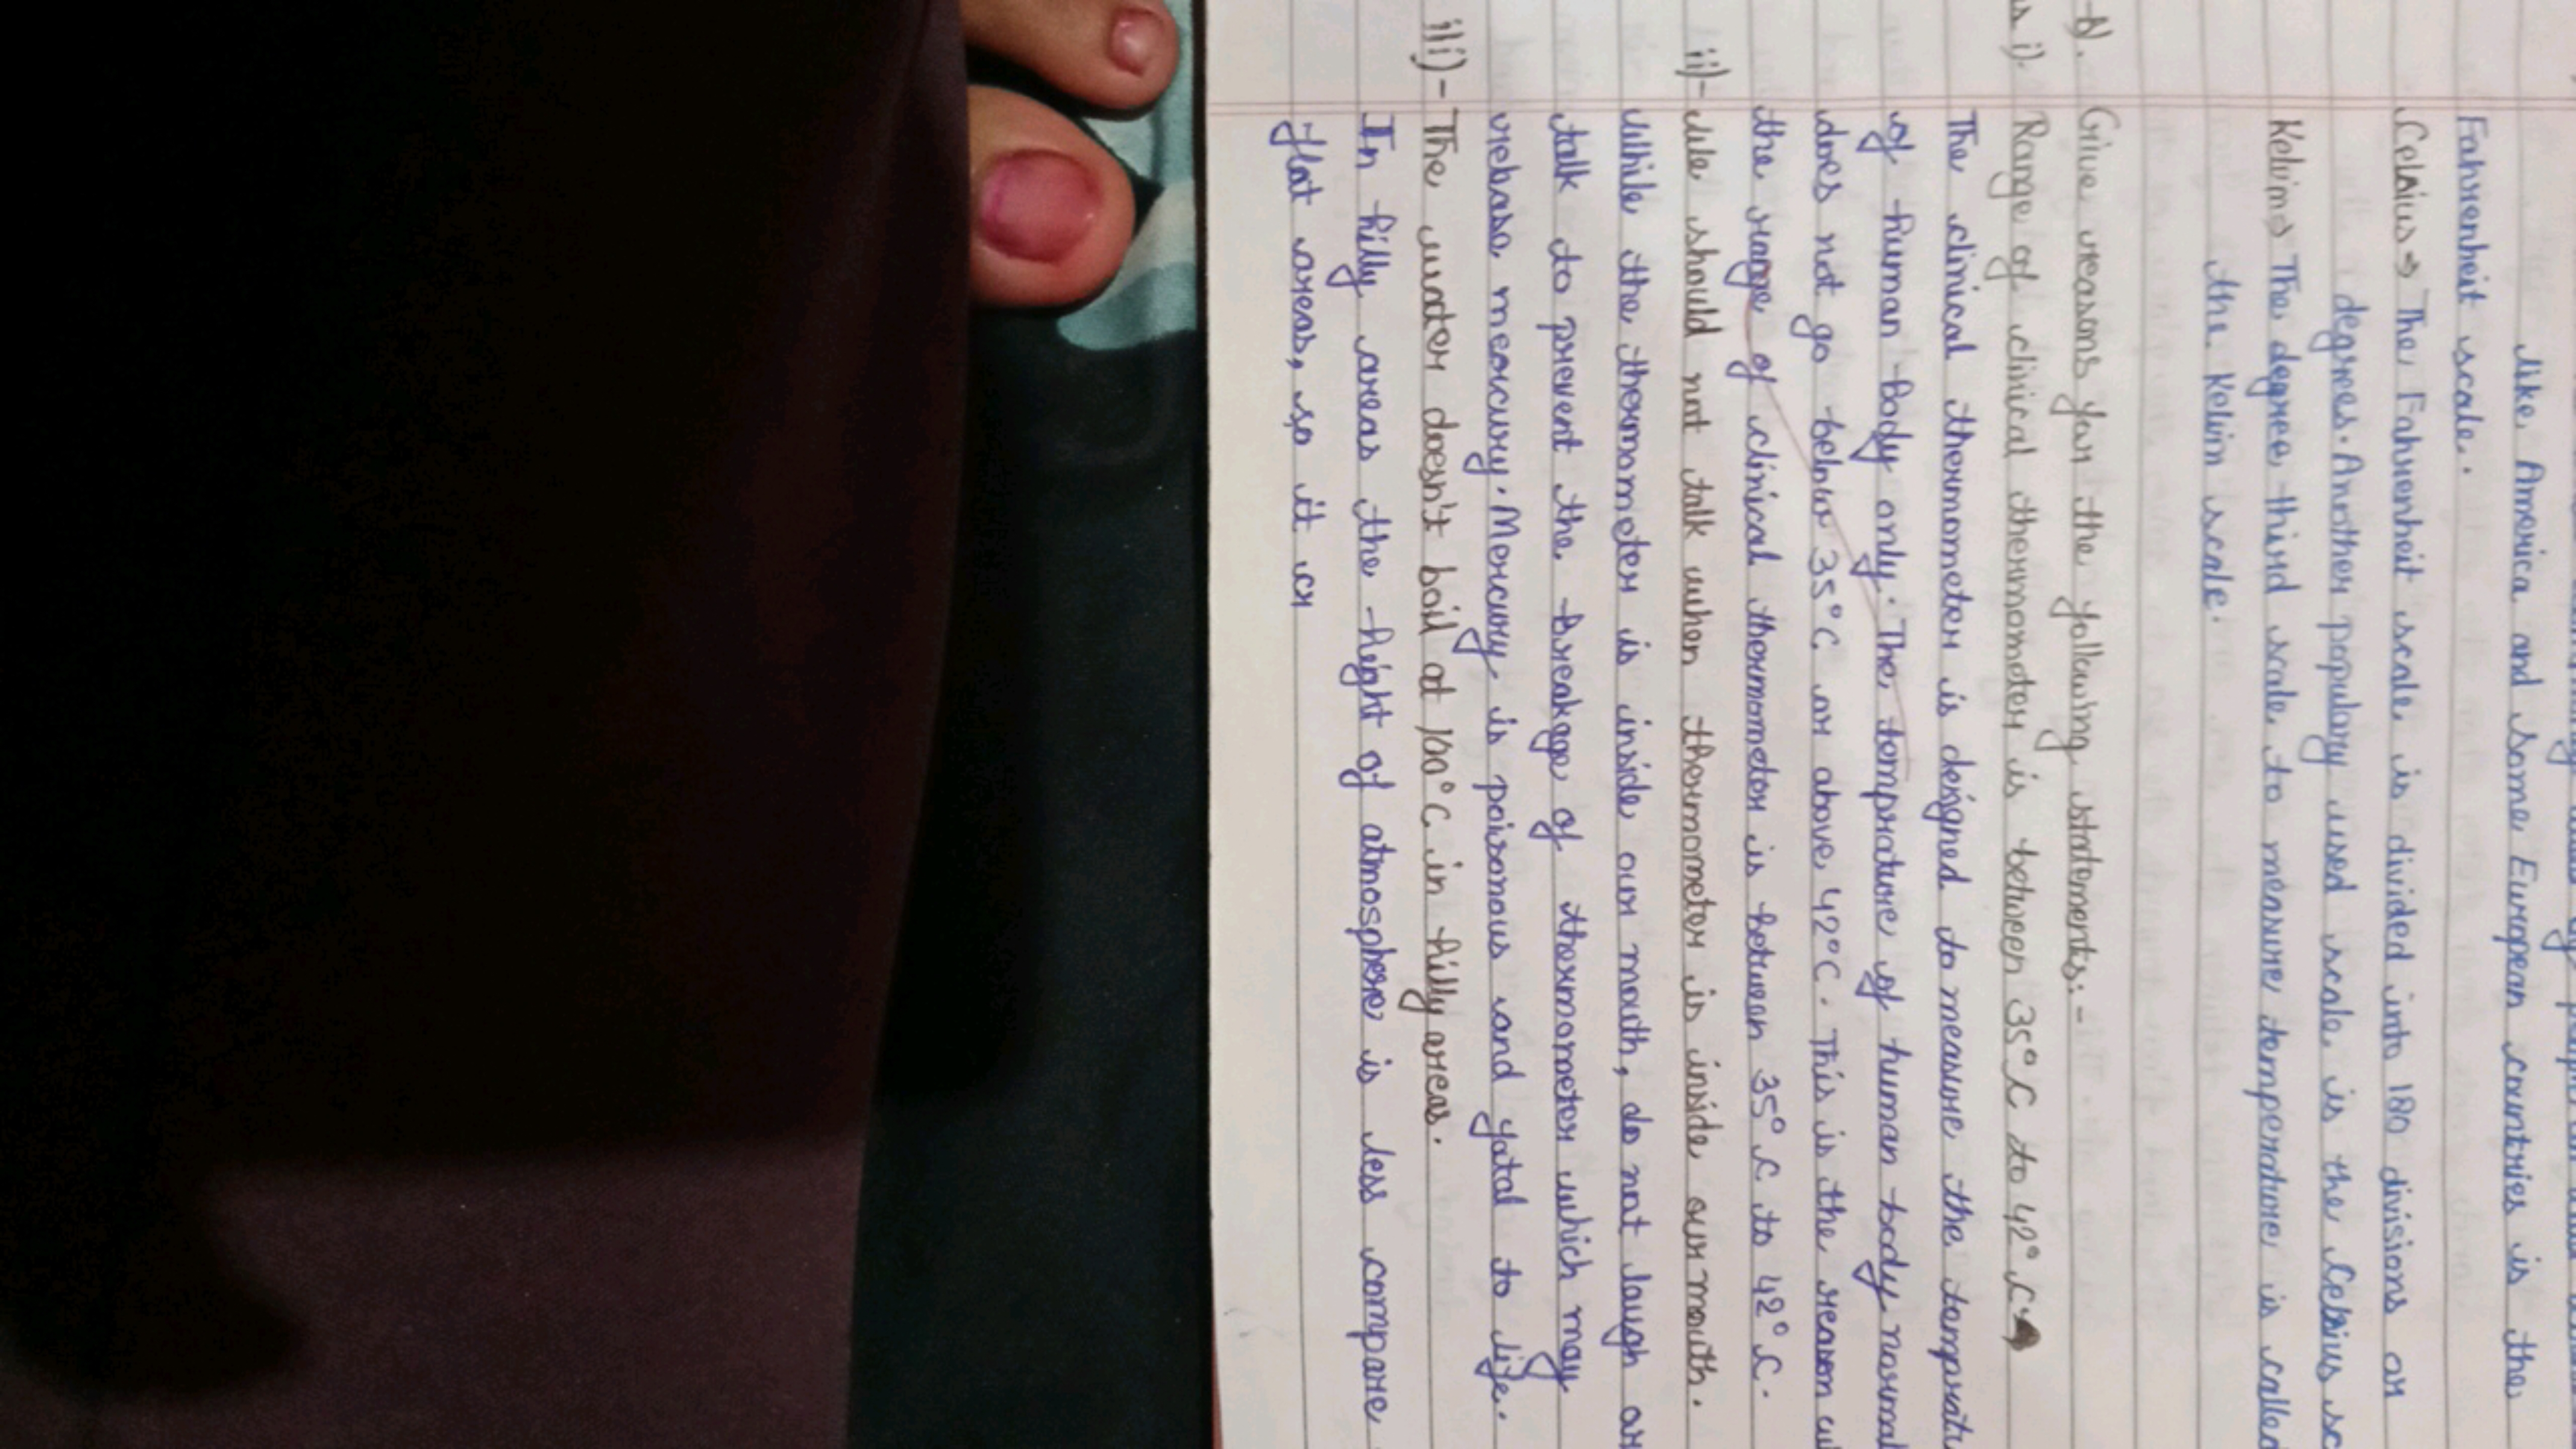 like America and some European countries is the
Fahrenheit scale.
Celsius → The Fahrenheit scale is divided into 180 divisions or
degrees. Another populary used scale is the Celsius sc
Kelvin → The degree third scale to measure temperature is called
the Kelvin scale.
-b). Give reasons for the following statements:-
s i). Range of clinical thermometer is between 35°C to 42°C
The clinical thermometer is designed to measure the tempratu
of human body only. The temprature of human body normal
does not go below 35°C or above 42°C. This is the reason w
the range of clinical thermometer is between 35°C to 42°C.
ii)- We should not talk when thermometer is inside our mouth.
While the thermometer is inside our mouth, do not laugh or
talk to prevent the breakage of thermometer which may
rebase mercury. Mercury is poisonous and fatal to life.
iii)- The water doesn't boil at 100°C in hilly areas.
In hilly areas the hight of atmosphere is less compare
flat areas, so it cr